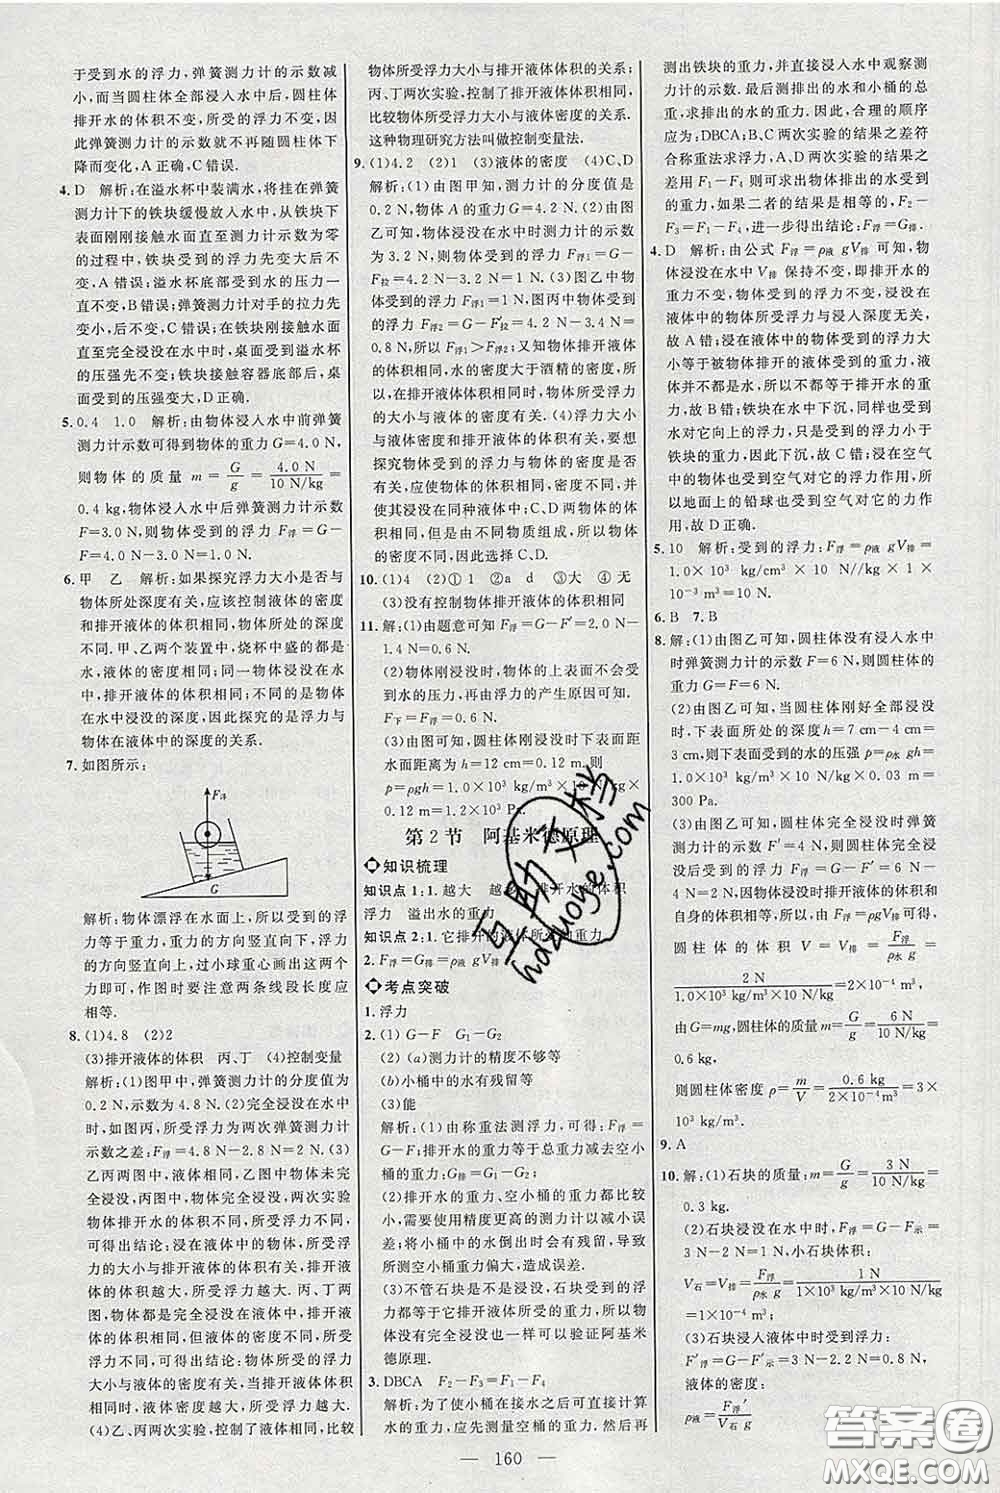 于受到水的浮力,弹簧测力计的示数减
小,而当圆柱体全部浸入水中后,圆柱体
排开水的体积不变,所受的浮力不变,因
此弹簧测力计的示数就不再随圆柱体下
降而变化,A正确,C错误.
4. D 解析:在溢水杯中装满水,将挂在弹簧
测力计下的铁块缓慢放入水中,从铁块下
表面刚刚接触水面直至测力计示数为零
的过程中,铁块受到的浮力先变大后不
变,A错误;溢水杯底部受到水的压力一
直不变,B错误;弹簧测力计对手的拉力先
变小,后不变,C错误;在铁块刚接触水面
直至完全浸没在水中时,桌面受到溢水杯
的压强先不变;铁块接触容器底部后,桌面
受到的压强变大,D正确.
5. 0.4 1.0 解析:由物体浸入水中前弹簧
测力计示数可得到物体的重力G=4.0 N,
则物体的质量 m=G/g=4.0 N/10 N/kg=
0.4 kg,物体浸入水中后弹簧测力计示数
F=3.0 N,则物体受到的浮力 F浮=G-
F=4.0 N-3.0 N=1.0 N.
6. 甲 乙 解析:如果探究浮力大小是否与
物体所处深度有关,应该控制液体的密度
和排开液体的体积相同,物体所处的深度
不同.甲、乙两个装置中,烧杯中盛的都是
水,液体的密度相同;同一物体浸没在水
中,排开液体的体积相同;不同的是物体
在水中浸没的深度,因此探究的是浮力与
物体在液体中的深度的关系.
7. 如图所示:
F浮
G
解析:物体漂浮在水面上,所以受到的浮
力等于重力,重力的方向竖直向下,浮力
的方向竖直向上,过小球重心画出这两个
力即可,作图时要注意两条线段长度应
相等.
8. (1)4.8 (2)2
(3)排开液体的体积 丙、丁 (4)控制变量
解析:(1)图甲中,弹簧测力计的分度值为
0.2 N,示数为4.8 N.(2)完全浸没在水中
时,如图丙,所受浮力为两次弹簧测力计
示数之差:F浮=4.8 N-2.8 N=2 N.(3)
乙丙两图中,液体相同,乙图中物体未完
全浸没,丙图中物体完全浸没,两次实验
物体排开水的体积不同,所受浮力不同,
可得出结论:浸在液体中的物体所受浮力
的大小与排开液体的体积有关,排开液体
的体积越大,所受浮力越大.丙、丁两图
中,物体都是完全浸没在液体中,排开液
体的体积相同,但液体的密度不同,所受
浮力不同,可得出结论:物体所受的浮力
大小与液体的密度有关,排开液体体积
相同时,液体密度越大,所受浮力越大.
(4)乙、丙两次实验,控制了液体相同,比较
物体所受浮力大小与排开液体体积的关系;
丙、丁两次实验,控制了排开液体体积相同,
比较物体所受浮力大小与液体密度的关系.
这种物理研究方法叫做控制变量法.
9. (1)4.2 (2)1 (3)液体的密度 (4)C、D
解析:(1)由图甲知,测力计的分度值是
0.2 N,物体 A 的重力G=4.2 N.(2)由图
乙可知,物体浸没在水中时测力计的示数
为3.2 N,则受到的浮力大小 F浮1=G-
F拉=4.2 N-3.2 N=1 N.(3)图乙中物体
受到的浮力 F浮1=1 N,图丙中物体受到
的浮力 F浮2=G-F′拉=4.2 N-3.4 N=
0.8 N,所以 F浮1>F浮2,又知物体排开液
体的体积相同,水的密度大于酒精的密度,
所以,在排开液体体积相同时,物体所受浮力
的大小与液体的密度有关.(4)浮力大小
与液体密度和排开液体的体积有关,要想
探究物体受到的浮力与物体密度的关系,
应使物体的体积相同,物体密度不同,并
使其浸没在同种液体中;C、D两物体的体
积相同,但是由不同物质组成,所以物体
的密度不同,因此选择C、D.
10. (1)4 (2)①1 ②a d ③大 ④无
(3)没有控制物体排开液体的体积相同
11. 解:(1)由题意可知 F浮=G-F′=2.0 N-
1.4 N=0.6 N.
(2)物体刚浸没时,物体的上表面不会受
到水的压力,再由浮力的产生原因可知.
F下=F浮=0.6 N.
(3)由图可知,圆柱体刚浸没时下表面距
水面距离为 h=12 cm=0.12 m.则
p=ρgh=1.0×10³ kg/m³×10 N/kg×
0.12 m=1.2×10³ Pa.
第2节 阿基米德原理
知识梳理
知识点1:1. 越大 越 排开水的体积
浮力 溢出水的重力
知识点2:1. 它排开的液体所受的重力
2. F浮=G排=ρ液 gV排
考点突破
1. 浮力
2. (1) G-F G₁-G₂
(2) (a)测力计的精度不够等
(b)小桶中的水有残留等
(3)能
解析:(1)由称重法测浮力:F浮=G-
F;排开水的重力等于总重力减去空小
桶的重力:G排=G₁-G₂.
(2)排开水的重力、空小桶的重力都比较
小,需要使用精度更高的测力计以减小误
差;若将小桶中的水倒出时有残留,会导致
所测空小桶重力偏大,造成误差.
(3)不管石块是不是浸没,石块受到的浮
力都等于它排开液体所受的重力,所以物
体没有完全浸没一样可以验证阿基米
德原理.
3. DBCA F₂-F₃=F₁-F₄
解析:为了使小桶在接水之后可直接计算
水的重力,应先测量空桶的重力.然后再
测出铁块的重力,并直接浸入水中观察测
力计的示数.最后测排出的水和小桶的总
重,求排出的水的重力.因此,合理的顺序
应为:DBCA;B、C两次实验的结果之差符
合称重法求浮力,A、D两次实验的结果之
差用 F₁-F₄ 则可求出物体排出的水受到
的重力,如果二者的结果是相等的,F₂-
F₃=F₁-F₄,进一步得出结论:F浮=G排.
4. D 解析:由公式 F浮=ρ液 gV排 可知,物
体浸没在水中V排 保持不变,即排开水的
体积不变,因此受到的浮力不变,浸没在
液体中的物体的浮力与浸入深度无关,
故A错;浸没在液体中的物体受到的浮力大
小等于被物体排开的液体受到的重力,液
体不同,所以并不都等于排开的水的重
力,故B错;铁块在水中下沉,同样也受到
水对它向上的浮力,只是受到的浮力小于
铁块的重力,因此下沉,故C错;浸在空气
中的物体也受到空气对它的浮力作用,所
以地面上的铅球也受到空气对它的力作
用,故D正确.
5. 10 解析:受到的浮力:F浮=ρ液 gV排=
1.0×10³ kg/m³×10 N/kg×1×
10⁻³ m³=10 N.
6. B 7. B
8. 解:(1)由图乙可知,圆柱体没有浸入水中
时弹簧测力计的示数F=6 N,则圆柱体的
重力G=F=6 N.
(2)由图乙可知,当圆柱体刚好全部浸没
时,下表面所处的深度h=7 cm-4 cm=
3 cm,则下表面受到的水的压强 p=ρ水 gh=
1.0×10³ kg/m³×10 N/kg×0.03 m=
300 Pa.
浸没后受到的浮力:F浮=G-F′=6 N-
4 N=2 N.因物体浸没时排开液体的体积和
自身的体积相同,由 F浮=ρgV排可得,
圆柱体的体积 V=V排=F浮/ρ水 g=
2 N/1.0×10³ kg/m³×10 N/kg=2×10⁻⁴ m³,
由G=mg,圆柱体的质量 m=G/g=6 N/10 N/kg=
0.6 kg,
则圆柱体密度 ρ=m/V=0.6 kg/2×10⁻⁴ m³=3×
10³ kg/m³.
9. A
10. 解:(1)石块的质量:m=G/g=3 N/10 N/kg=
0.3 kg.
(2)石块浸没在水中时,F浮=G-F示=
3 N-2 N=1 N,石块体积:
V石=V排=F浮/ρ水 g=1 N/1×10³ kg/m³×10 N/kg
=1×10⁻⁴ m³;
(3)石块浸入液体中时受到浮力:
F′浮=G-F′示=3 N-2.2 N=0.8 N,
液体的密度:
ρ液=F浮′/V石 g=
— 160 —
互助文档
hdzuoye.com
答案圈
MXQE.COM